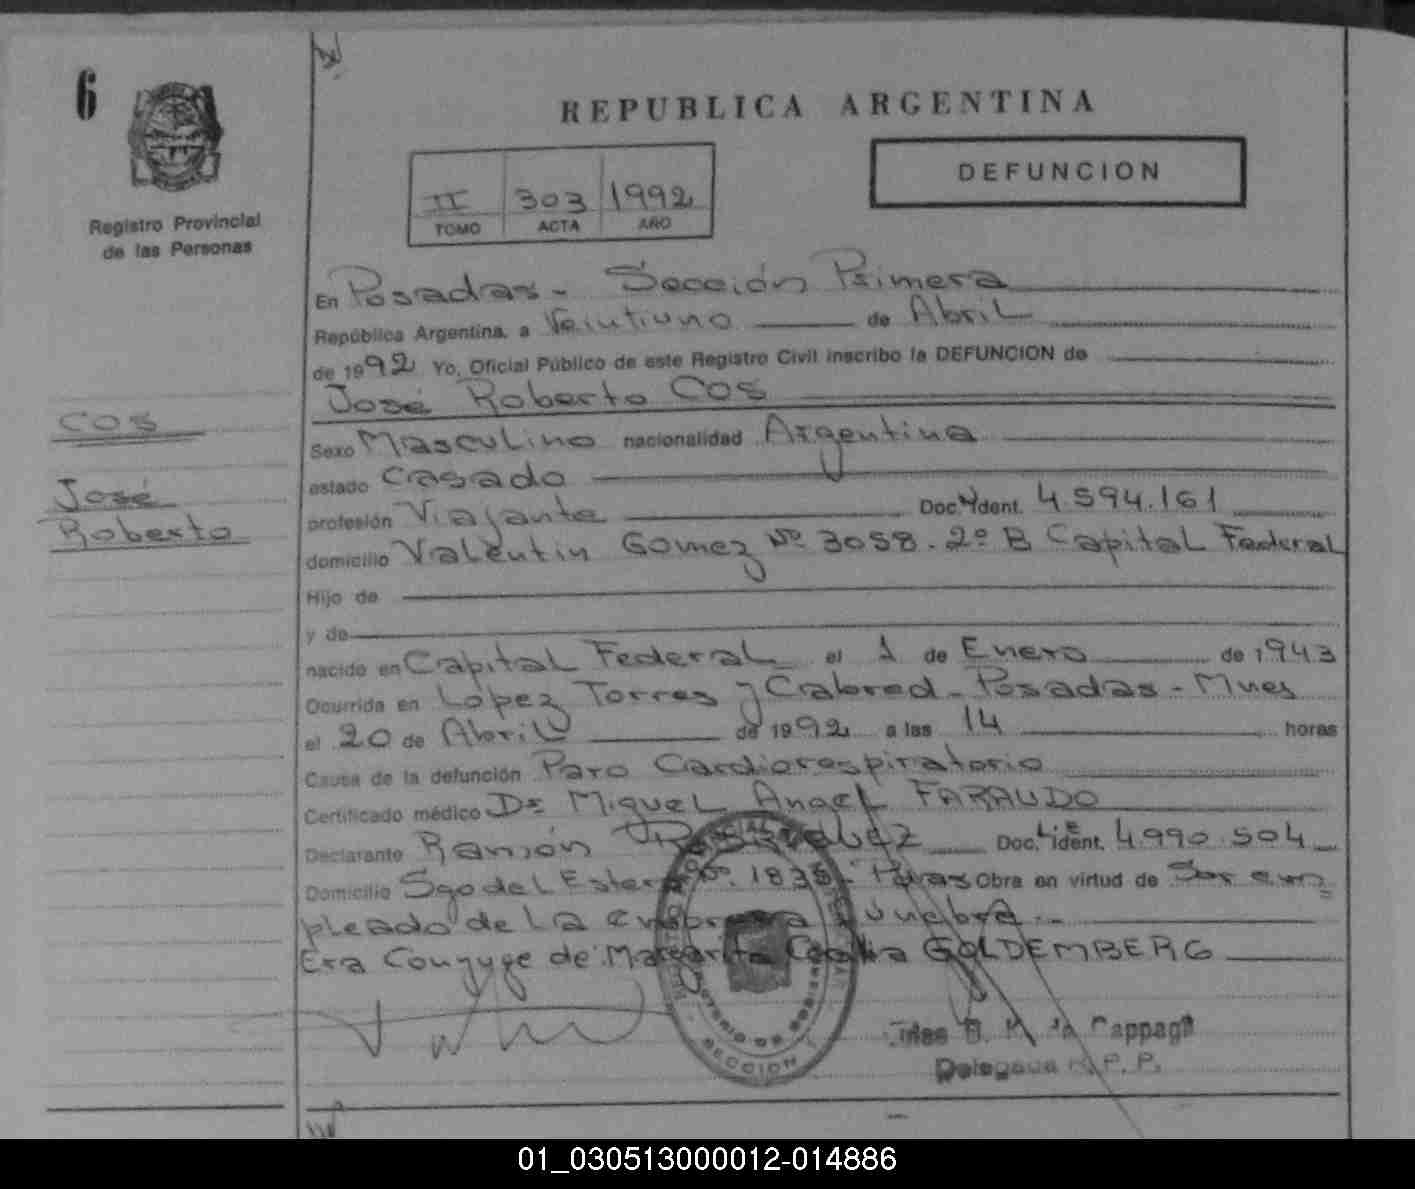 6
Registro Provincial
de las Personas
COS
José
Roberto
REPUBLICA ARGENTINA
II 303 1992
TOMO ACTA AÑO
DEFUNCION
En Posadas - Sección Primera
República Argentina, a Veintiuno de Abril
de 1992 Yo, Oficial Público de este Registro Civil inscribo la DEFUNCION de
José Roberto COS
Sexo Masculino nacionalidad Argentina
estado Casado
profesión Viajante Doc. Ident. 4.594.161
domicilio Valentin Gomez Nº 3058. 2º B Capital Federal
Hijo de
y de
nacido en Capital Federal el 1 de Enero de 1943
Ocurrida en López Torres y Cabred - Posadas - Mnes
el 20 de Abril de 1992 a las 14 horas
Causa de la defunción Paro Cardiorespiratorio
Certificado médico Dr Miguel Angel FARAUDO
Declarante Ramón Doc. L.E ident. 4.990.504
Domicilio Sgo del Estero Nº. 1838 - Pdas Obra en virtud de Ser em=
pleado de la empresa Fúnebre.-
Era Conyuge de: Margarita Cecilia GOLDEMBERG
SECCION
Cappag
Delegada R.P.P.
01_030513000012-014886